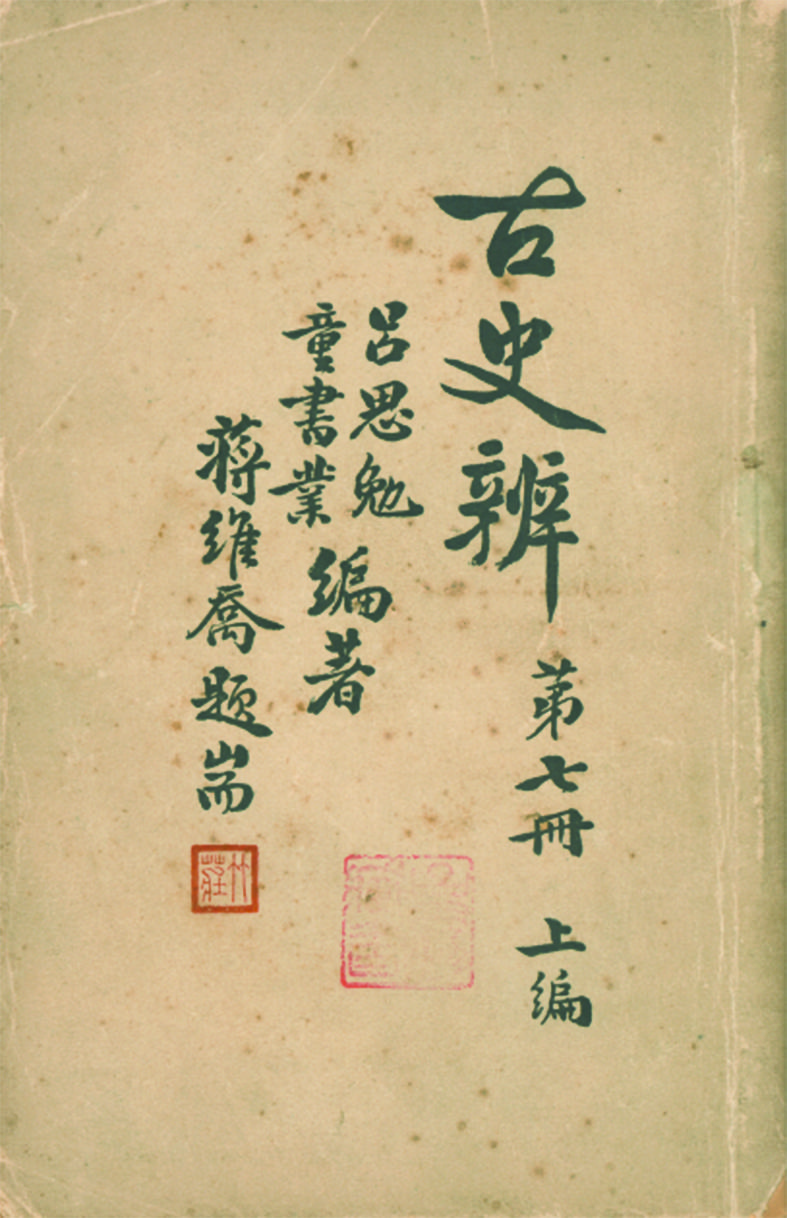 古史辨 第七冊 上編
呂思勉
童書業
編著
蔣維喬題耑
竹莊